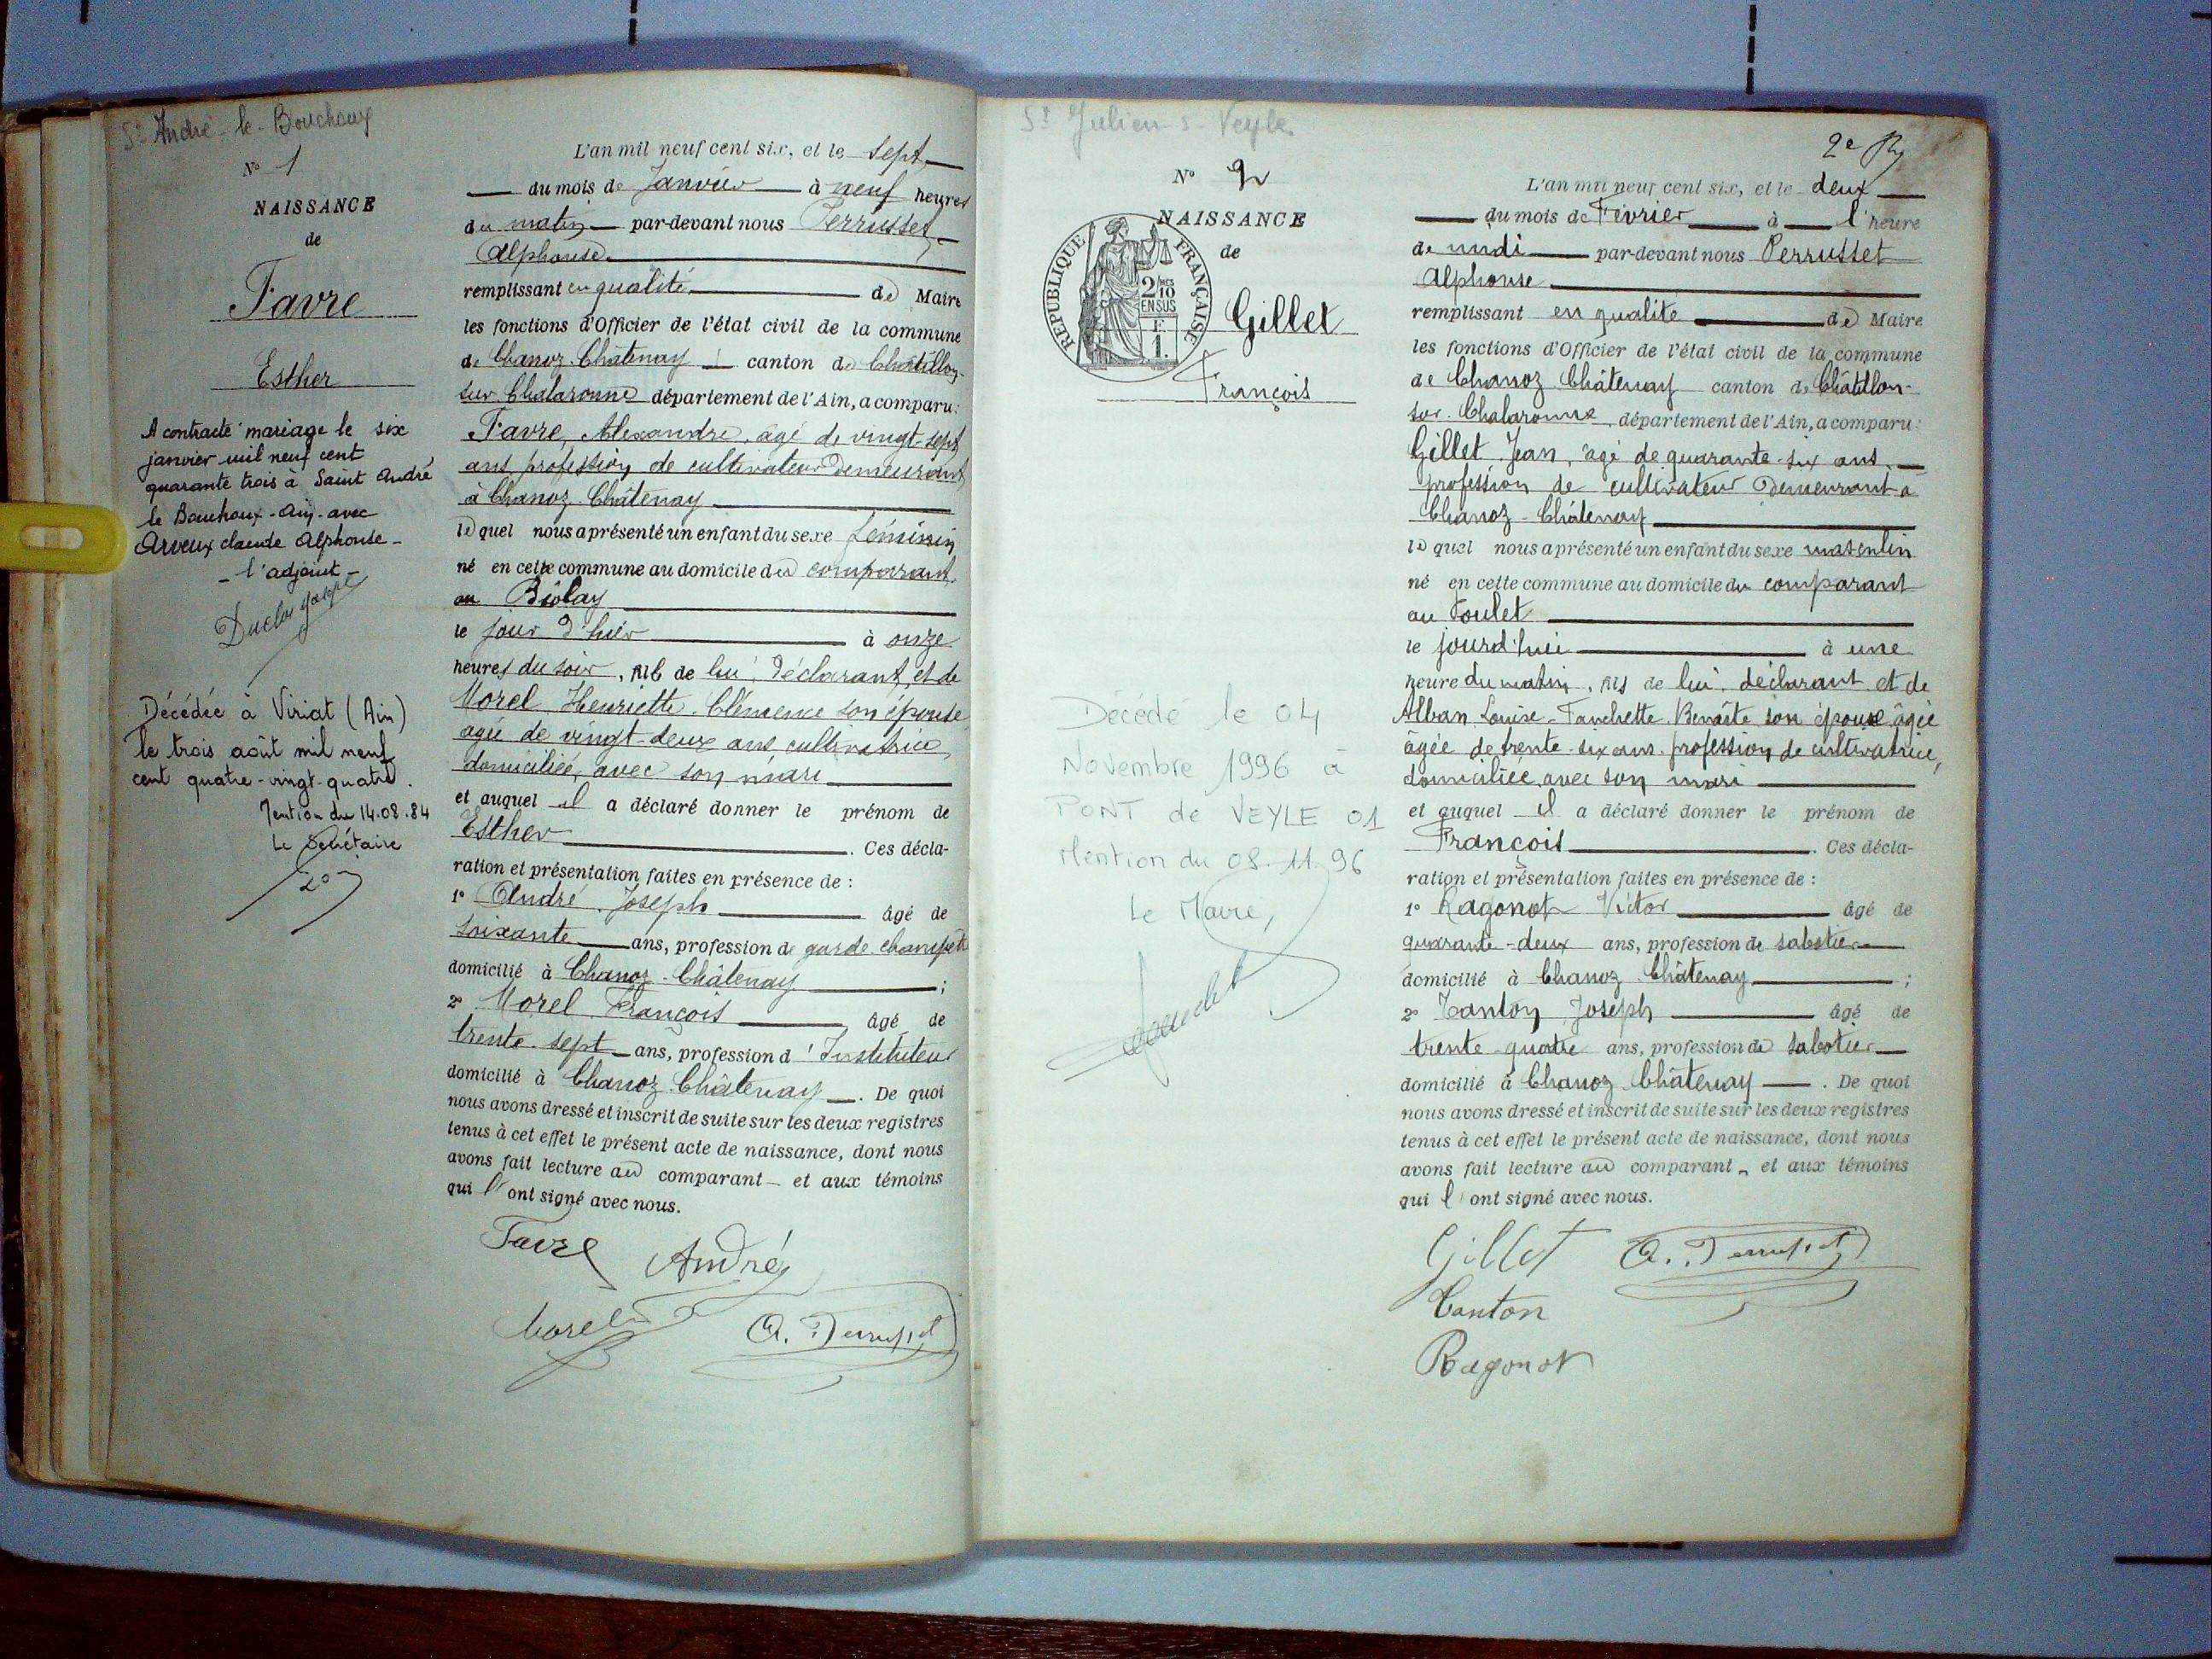 St André-le-Bouchoux
N° 1
NAISSANCE
de
Favre
Esther
A contracté mariage le six
janvier mil neuf cent
quarante trois à Saint André
le Bouchoux - Ain - avec
Arveux claude Alphonse -
- l'adjoint -
Décédée à Viriat (Ain)
le trois août mil neuf
cent quatre-vingt-quatre.
Mention du 14.08.84
Le Secrétaire
L'an mil neuf cent six, et le sept
du mois de Janvier à neuf heures
du matin par-devant nous Perrusset
Alphonse
remplissant en qualité de Maire
les fonctions d'Officier de l'état civil de la commune
de Chanoz-Châtenay canton de Châtillon-
sur-Chalaronne département de l'Ain, a comparu:
Favre, Alexandre, âgé de vingt-sept
ans, profession de cultivateur demeurant
à Chanoz-Châtenay
lequel nous a présenté un enfant du sexe féminin
né en cette commune au domicile du comparant
au Biolay
le jour d'hier à onze
heures du soir, fille de lui, déclarant, et de
Morel Henriette Clémence son épouse
agée de vingt-deux ans cultivatrice,
domiciliée, avec son mari
et auquel il a déclaré donner le prénom de
Esther. Ces décla-
ration et présentation faites en présence de :
1° André Joseph âgé de
soixante ans, profession de garde-champêtre
domicilié à Chanoz-Châtenay ;
2° Morel François âgé de
trente-sept ans, profession d'Instituteur
domicilié à Chanoz-Châtenay. De quoi
nous avons dressé et inscrit de suite sur les deux registres
tenus à cet effet le présent acte de naissance, dont nous
avons fait lecture au comparant et aux témoins
qui l'ont signé avec nous.
Favre André
Morel A. Perrusset
St Julien-s-Veyle
2e
N° 2
NAISSANCE
de
REPUBLIQUE FRANÇAISE
2/10 MES
EN SUS
F.
1.
Gillet
François
Décédé le 04
Novembre 1996 à
PONT de VEYLE 01
Mention du 08.11.96
Le Maire,
L'an mil neuf cent six, et le deux
du mois de Février à l'heure
de midi par-devant nous Perrusset
Alphonse
remplissant en qualité de Maire
les fonctions d'Officier de l'état civil de la commune
de Chanoz-Châtenay canton de Châtillon-
sur-Chalaronne département de l'Ain, a comparu:
Gillet Jean, âgé de quarante-six ans,
profession de cultivateur demeurant à
Chanoz-Châtenay
lequel nous a présenté un enfant du sexe masculin
né en cette commune au domicile du comparant
au
le jourd'hui à une
heure du matin, fils de lui, déclarant et de
Alban Louise-Fanchette Benoîte son épouse âgée
âgée de trente-six ans profession de cultivatrice,
domiciliée avec son mari
et auquel il a déclaré donner le prénom de
François. Ces décla-
ration et présentation faites en présence de :
1° Ragonot Victor âgé de
quarante-deux ans, profession de sabotier
domicilié à Chanoz-Châtenay ;
2° Canton Joseph âgé de
trente-quatre ans, profession de sabotier
domicilié à Chanoz-Châtenay. De quoi
nous avons dressé et inscrit de suite sur les deux registres
tenus à cet effet le présent acte de naissance, dont nous
avons fait lecture au comparant et aux témoins
qui l'ont signé avec nous.
Gillet A. Perrusset
Canton
Ragonot